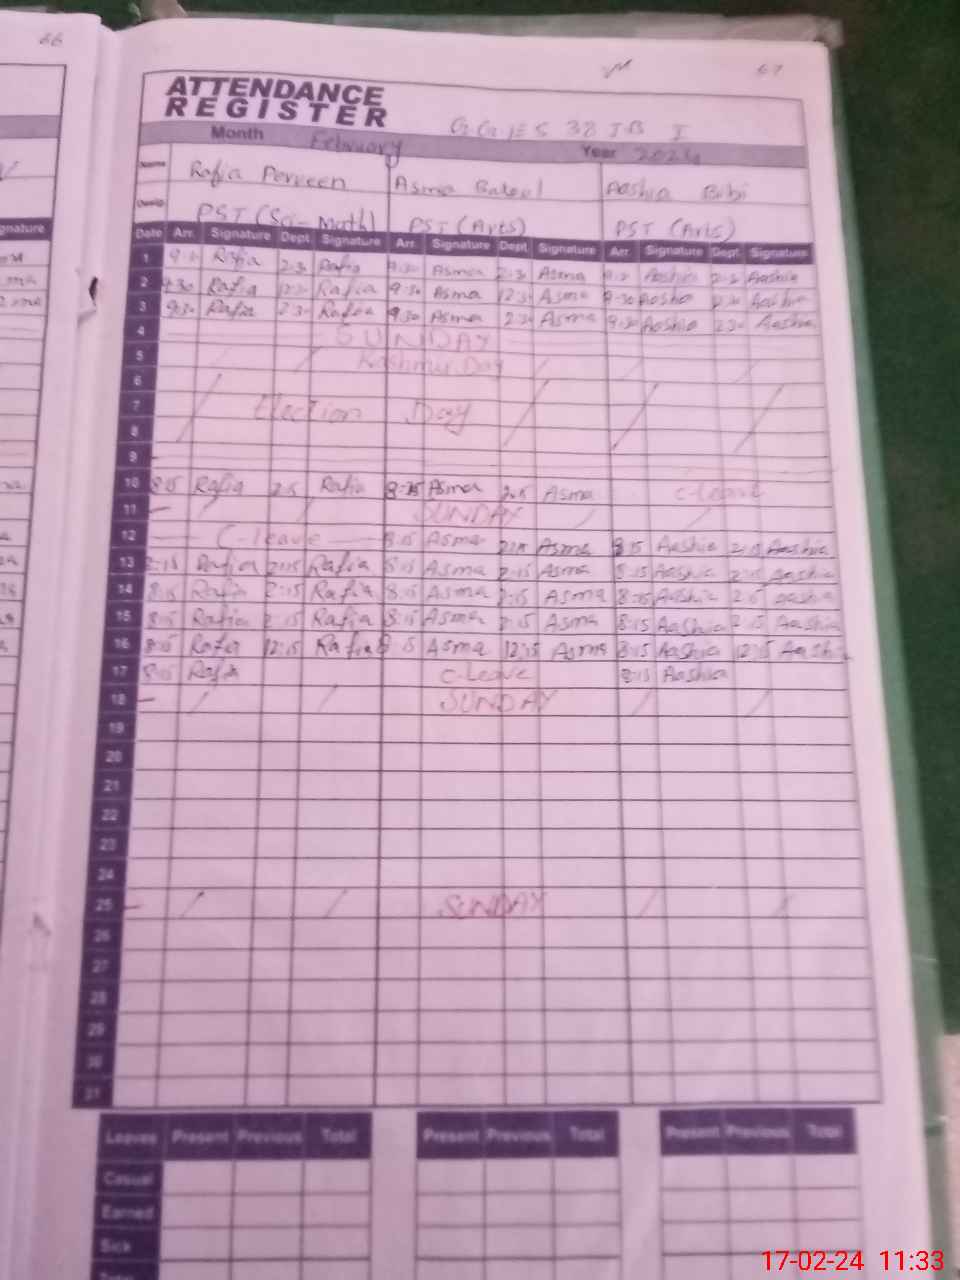 66
67
ATTENDANCE
REGISTER
GGES 38 JB I
Month February Year 2024
Name Rafia Perveen Asma Batool Aashia Bibi
PST (Sci-Math) PST (Arts) PST (Arts)
gnature
Date Arr. Signature Dept. Signature Arr. Signature Dept. Signature Arr. Signature Dept. Signature
1 Rafia 2:30 Rafia 9:30 Asma 2:30 Asma Aashia Aashia
2 9:30 Rafia 12:30 Rafia 9:30 Asma 12:30 Asma 9:30 Aashia Aashia
3 9:30 Rafia 2:30 Rafia 9:30 Asma 2:30 Asma 9:30 Aashia 2:30 Aashia
4 SUNDAY
5 Kashmir Day
6
7 Election Day
8
9
10 8:15 Rafia 2:15 Rafia 8:15 Asma 2:15 Asma C-leave
11 SUNDAY
12 C-leave 8:15 Asma 2:15 Asma 8:15 Aashia 2:15 Aashia
13 8:15 Rafia 2:15 Rafia 8:15 Asma 2:15 Asma 8:15 Aashia 2:15 Aashia
14 8:15 Rafia 2:15 Rafia 8:15 Asma 2:15 Asma 8:15 Aashia 2:15 Aashia
15 8:15 Rafia 2:15 Rafia 8:15 Asma 2:15 Asma 8:15 Aashia 2:15 Aashia
16 8:15 Rafia 12:15 Rafia 8:15 Asma 12:15 Asma 8:15 Aashia 12:15 Aashia
17 8:15 Rafia C-Leave 8:15 Aashia
18 SUNDAY
19
20
21
22
23
24
25 SUNDAY
26
27
28
29
30
31
Leaves Present Previous Total Present Previous Total Present Previous Total
Casual
Earned
Sick
17-02-24 11:33